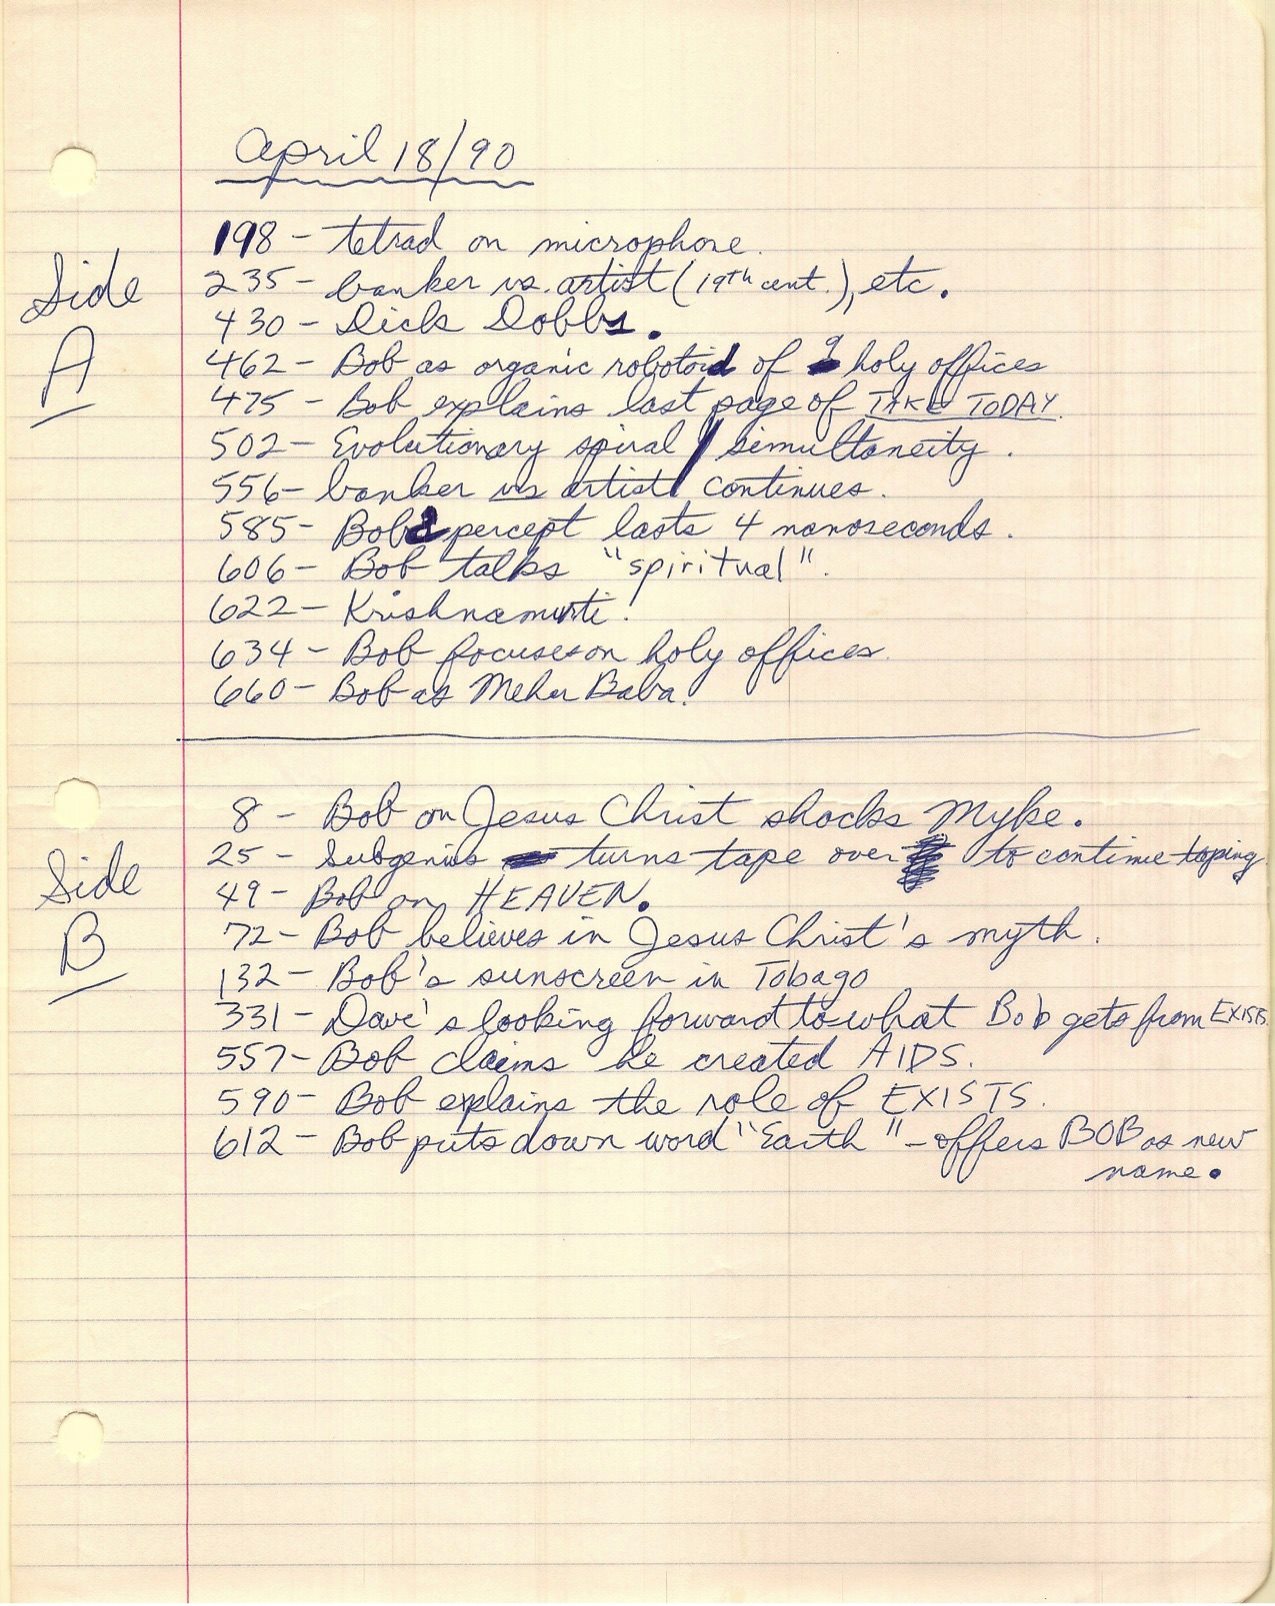 April 18/90
198 - tetrad on microphone.
Side A
235 - banker vs. artist (19th cent.), etc.
430 - Dick Dobbs.
462 - Bob as organic robotoid of 9 holy offices
475 - Bob explains last page of TAKE TODAY.
502 - Evolutionary spiral / simultaneity.
556 - banker vs artist continues.
585 - Bob percept lasts 4 nanoseconds.
606 - Bob talks "spiritual".
622 - Krishnamurti!
634 - Bob focuses on holy offices.
660 - Bob as Meher Baba!
8 - Bob on Jesus Christ shocks Myke.
Side B
25 - Subgenius turns tape over to continue taping
49 - Bob on HEAVEN.
72 - Bob believes in Jesus Christ's myth.
132 - Bob's sunscreen in Tobago
331 - Dave's looking forward to what Bob gets from EXISTS.
557 - Bob claims he created AIDS.
590 - Bob explains the role of EXISTS.
612 - Bob puts down word "Earth" - offers BOB as new
name.